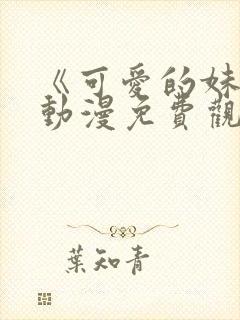 《可愛的妹
動漫免費觀
葉知青